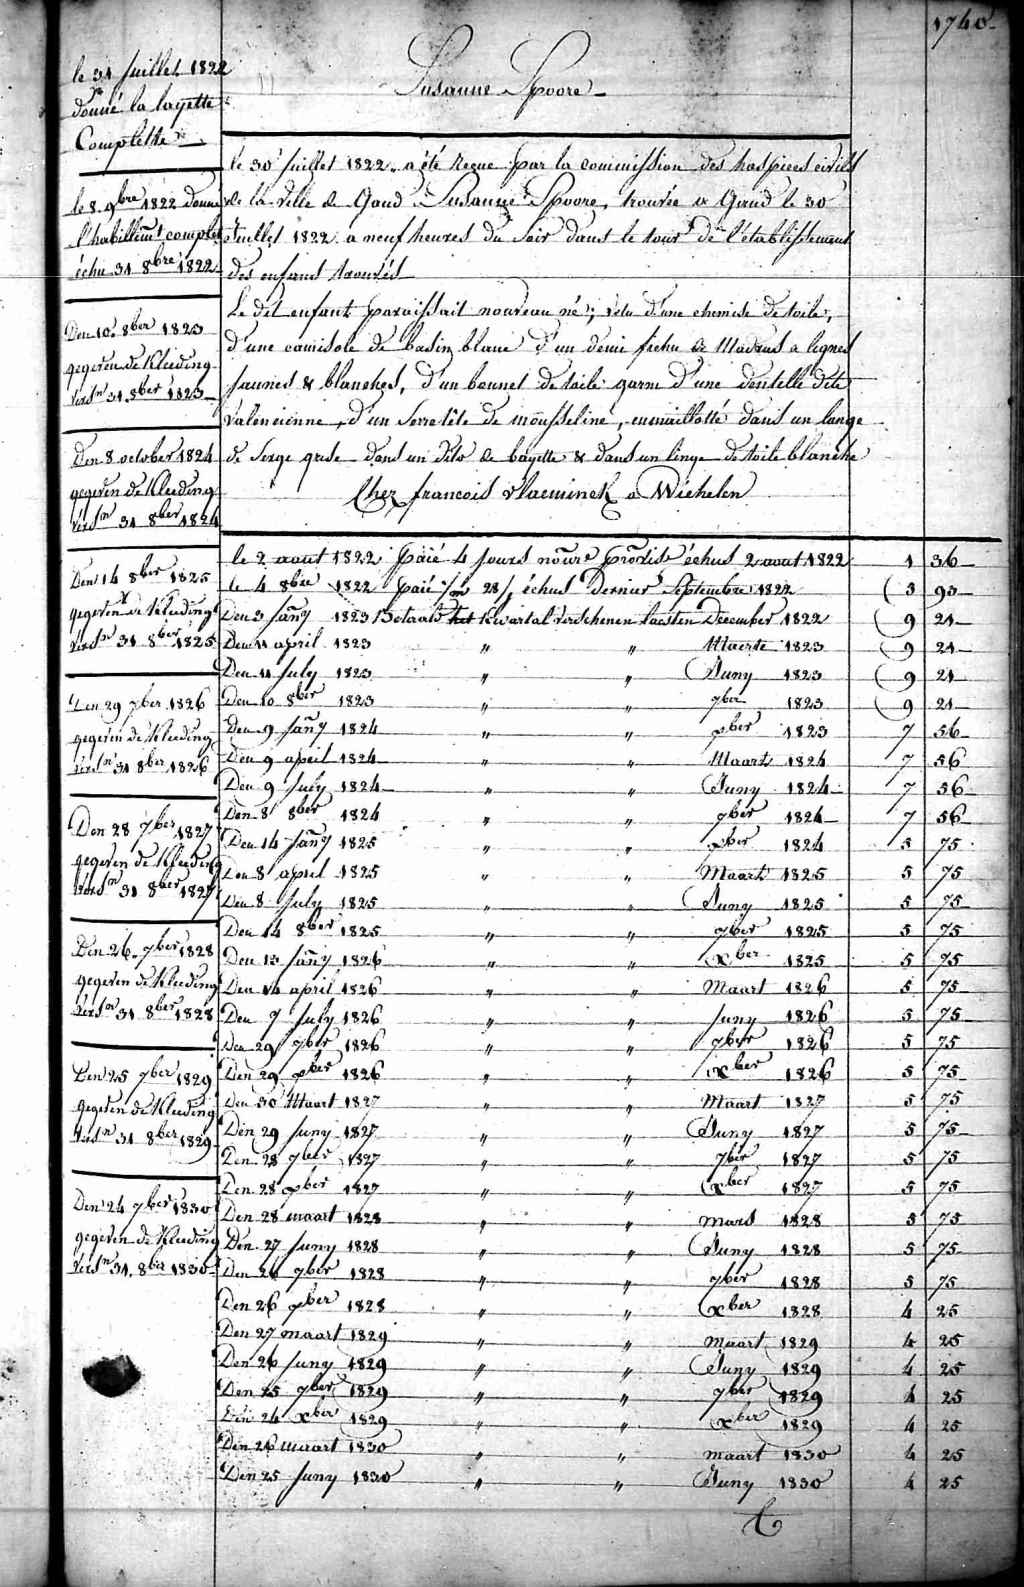 1740.
Susanne Spoore
le 31 Juillet 1822
donné la layette
Complette
le 8 9bre 1822 donné
l'habillemt complet
échu 31 8bre 1822
Den 10 8ber 1823
gegeven de Kleeding
versn 31 8ber 1823
Den 8 october 1824
gegeven de Kleeding
versn 31 8ber 1824
Den 14 8ber 1825
gegeven de Kleeding
versn 31 8ber 1825
Den 29 7ber 1826
gegeven de Kleeding
versn 31 8ber 1826
Den 28 7ber 1827
gegeven de Kleeding
versn 31 8ber 1827
Den 26 7ber 1828
gegeven de Kleeding
versn 31 8ber 1828
Den 25 7ber 1829
gegeven de Kleeding
versn 31 8ber 1829
Den 24 7ber 1830
gegeven de Kleeding
versn 31 8ber 1830
le 30 Juillet 1822 a été reçue par la commission des hospices civils
de la ville de Gand Susanne Spoore, trouvée a Gand le 30
Juillet 1822 a neuf heures du soir dans le tour de l'établissement
des enfans trouvés
Le dit enfant paraissait nouveau né; vetu d'une chemise de toile,
d'une camisole de basin blanc d'un demi fichu de Madras a lignes
jaunes & blanches, d'un bonnet de toile garni d'une dentelle dite
valencienne, d'un serretête de mousseline, enmaillotté dans un lange
de serge grise dans un dito de bayette & dans un linge de toile blanche
Chez francois Vlaeminck a Wichelen
le 2 aout 1822 paié 4 jours échus 2 aout 1822 1 36
le 4 8bre 1822 paié échus Dernier Septembre 1822 3 93
Den 3 Jany 1823 Betaald het Kwartal verschenen laesten December 1822 9 21
Den 11 april 1823 " " Maerte 1823 9 21
Den 11 July 1823 " " Juny 1823 9 21
Den 10 8ber 1823 " " 7ber 1823 9 21
Den 9 Jany 1824 " " xber 1823 7 56
Den 9 april 1824 " " Maart 1824 7 56
Den 9 July 1824 " " Juny 1824 7 56
Den 8 8ber 1824 " " 7ber 1824 7 56
Den 14 Jany 1825 " " xber 1824 5 75
Den 8 april 1825 " " Maart 1825 5 75
Den 8 July 1825 " " Juny 1825 5 75
Den 14 8ber 1825 " " 7ber 1825 5 75
Den 13 Jany 1826 " " xber 1825 5 75
Den 14 april 1826 " " Maart 1826 5 75
Den 7 July 1826 " " Juny 1826 5 75
Den 29 7ber 1826 " " 7ber 1826 5 75
Den 29 xber 1826 " " xber 1826 5 75
Den 30 Maart 1827 " " Maart 1827 5 75
Den 29 Juny 1827 " " Juny 1827 5 75
Den 28 7ber 1827 " " 7ber 1827 5 75
Den 28 xber 1827 " " xber 1827 5 75
Den 28 maart 1828 " " mars 1828 5 75
Den 27 Juny 1828 " " Juny 1828 5 75
Den 26 7ber 1828 " " 7ber 1828 5 75
Den 26 xber 1828 " " xber 1828 4 25
Den 27 maart 1829 " " maart 1829 4 25
Den 26 Juny 1829 " " Juny 1829 4 25
Den 25 7ber 1829 " " 7ber 1829 4 25
Den 24 xber 1829 " " xber 1829 4 25
Den 26 maart 1830 " " maart 1830 4 25
Den 25 Juny 1830 " " Juny 1830 4 25